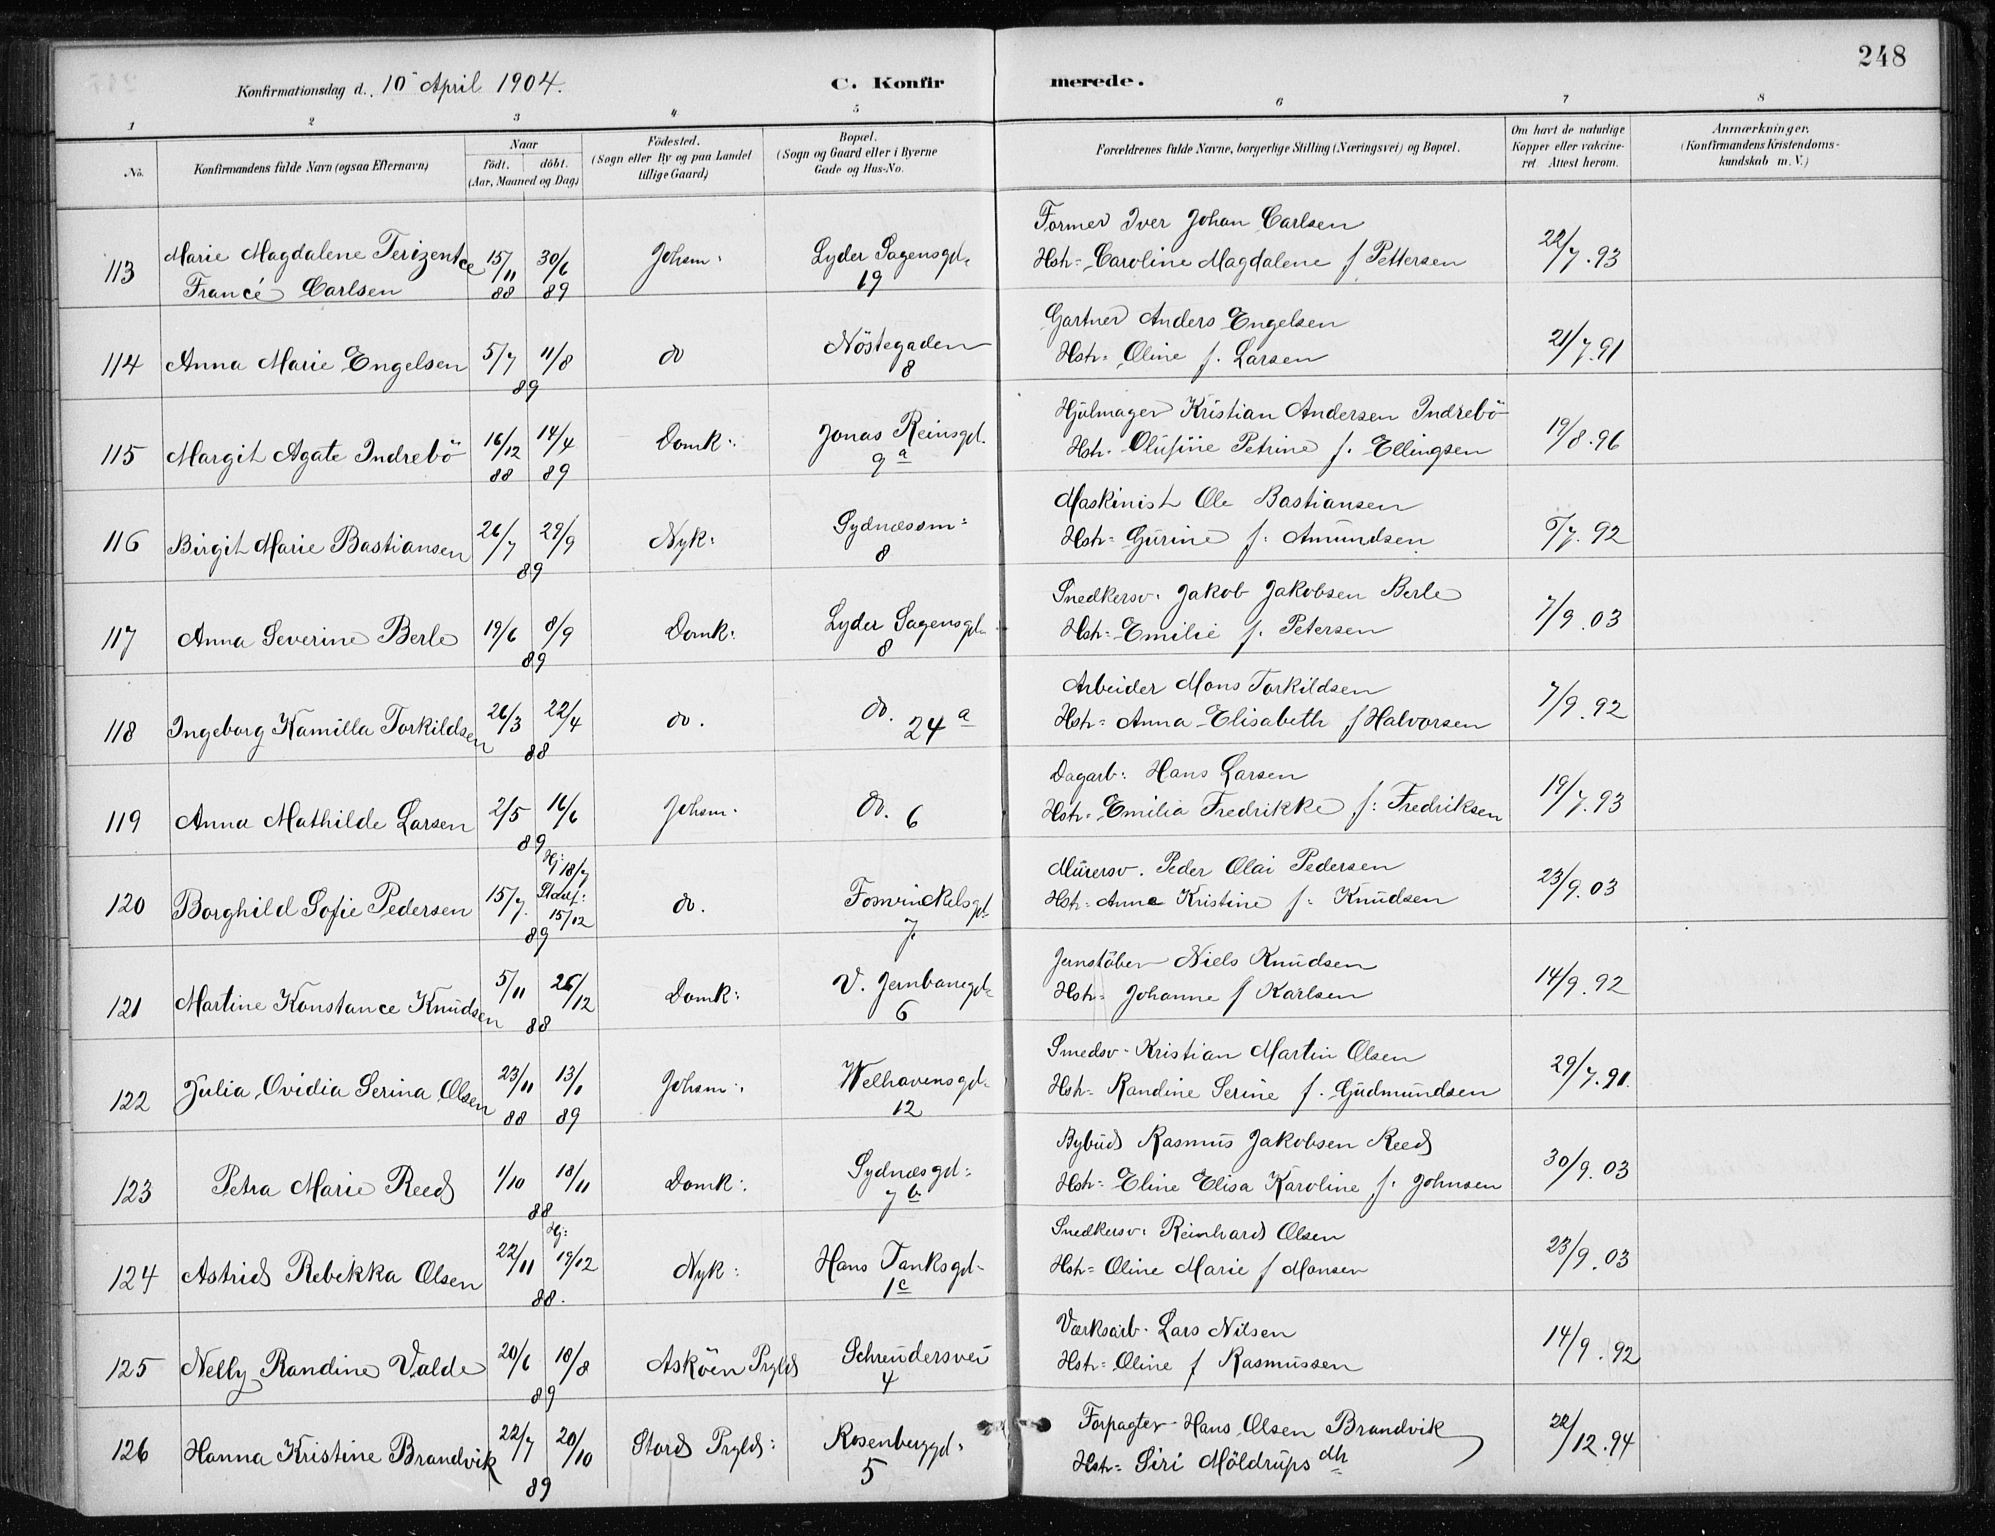 248
Konfirmationsdag d. 10 April 1904.
C. Konfirmerede.
1 2 3 4 5 6 7 8
No. Konfirmandens fulde Navn (ogsaa Efternavn) Naar födt. döbt. (Aar, Maaned og Dag) Födested. (Sogn eller By og paa Landet tillige Gaard) Bopæl. (Sogn og Gaard eller i Byerne Gade og Hus-No. Forældrenes fulde Navne, borgerlige Stilling (Næringsvei) og Bopæl. Om havt de naturlige Kopper eller vakcineret. Attest herom. Anmærkninger. (Konfirmandens Kristendomskundskab m. V.)
113 Marie Magdalene Terizentce 15/11 30/6 Johsm: Lyder Sagensgd. Former Iver Johan Carlsen 22/7.93
Francé Carlsen 88 89 19 Hstr: Caroline Magdalene f Pettersen
114 Anna Marie Engelsen 5/7 11/8 do Nöstegaden Gartner Anders Engelsen 21/7.91
89 8 Hstr: Oline f. Larsen
115 Margit Agate Indrebö 16/12 14/4 Domk: Jonas Reinsgd. Hjulmager Kristian Andersen Indrebö 19/8.96
88 89 9a Hstr. Olufine Petrine f. Ellingsen
116 Birgit Marie Bastiansen 26/7 29/9 Nyk: Sydnæssm: Maskinist Ole Bastiansen /7.92
89 8 Hstr: Gurine f: Amundsen
117 Anna Severine Berle 19/6 8/9 Domk: Lyder Sagensgd. Snedkersv. Jakob Jakobsen Berle 7/9.03
89 8 Hstr: Emilie f. Petersen
118 Ingeborg Kamilla Torkildsen 26/3 22/4 do. do. Arbeider Mons Torkildsen 7/9.92
88 24a Hstr: Anna Elisabeth f Halvorsen
119 Anna Mathilde Larsen 2/5 16/6 Johsm. do. 6 Dagarb: Hans Larsen 19/7.93
89 Hstr: Emilia Fredrikke f: Fredriksen
120 Borghild Sofie Pedersen 15/7. Hj: 18/7 Stadf: 15/12 do. Fosvinckelsgd. Murersv. Peder Olai Pedersen 23/9.03
89 7. Hstr: Anna Kristine f: Knudsen
121 Martine Konstance Knudsen 5/11 26/12 Domk: V. Jernbanegd. Jernstöber Niels Knudsen 14/9.92
88 6 Hstr: Johanne f Karlsen
122 Julia Ovidia Serina Olsen 23/11 13/1 Johsm: Welhavensgd. Smedsv. Kristian Martin Olsen 29/7.91.
88 89 12 Hstr: Randine Serine f. Gudmundsen
123 Petra Marie Reed 1/10 18/11 Domk: Sydnæsgd: Bybud Rasmus Jakobsen Reed 30/9.03
88 7b Hstr: Eline Elisa Karoline f. Johnsen
124 Astrid Rebekka Olsen 22/11 Hj: 19/12 Nyk: Hans Tanksgd. Snedkersv: Reinhard Olsen 23/9.03
88. 1c Hstr: Oline Marie f Monsen
125 Nelly Randine Valde 20/6 18/8 Asköen Prgld Schreudersvei Værksarb. Lars Nilsen 14/9.92
89 4 Hstr: Oline f Rasmussen
126 Hanna Kristine Brandvik 22/7 20/10 Stord Prgld: Rosenberggd: Forpagter Hans Olsen Brandvik 22/12.94
89 5 Hstr: Siri Möldrups dtr